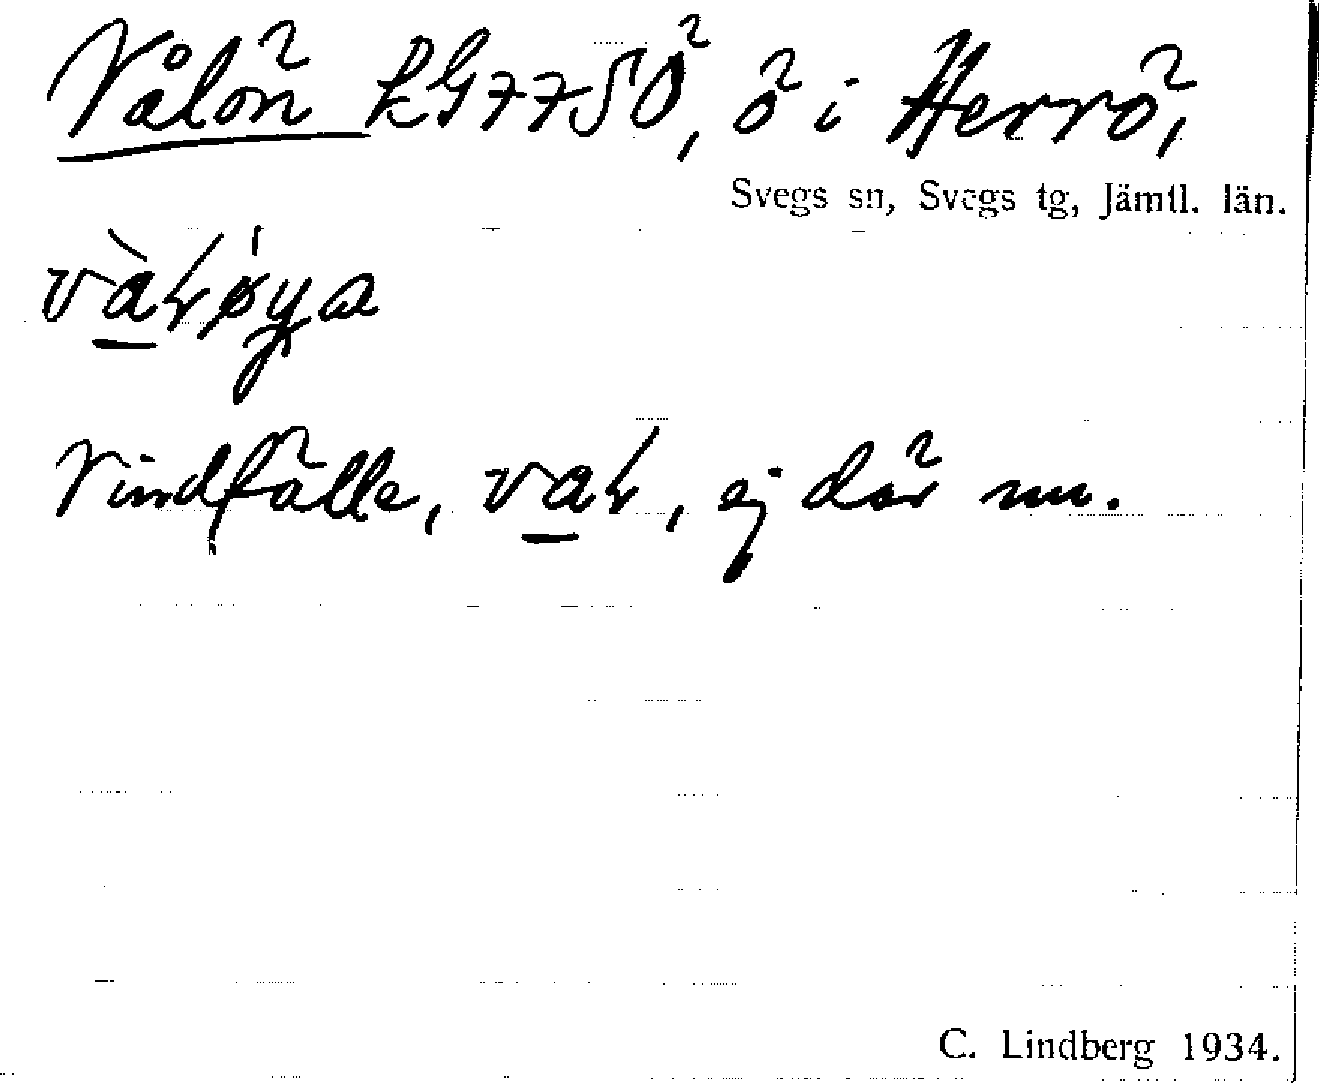 Vålön LG7750, ö i Herrö,
Svegs sn, Svegs tg, Jämtl. län.
Vindfälle, ej där nu.
C. Lindberg 1934.